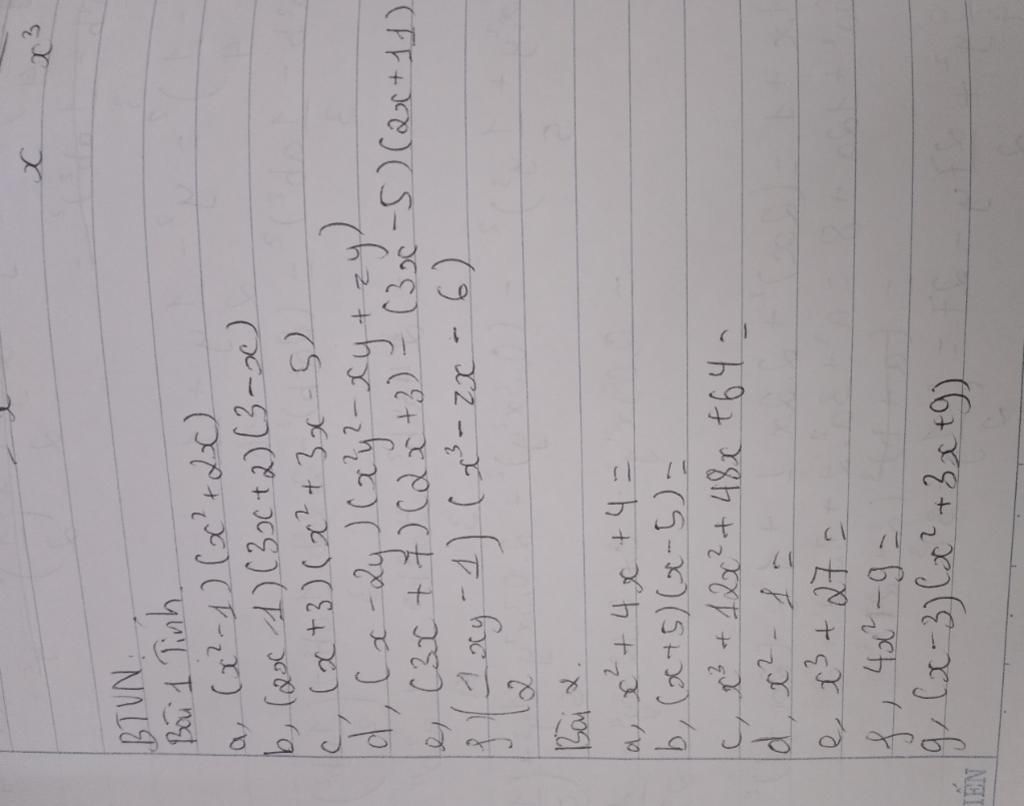 x x³
BTVN.
Bài 1 Tính
a, (x²-1)(x²+2x)
b, (2x-1)(3x+2)(3-x)
c, (x+3)(x²+3x-5)
d, (x-2y)(x²y²-xy+2y)
e, (3x+7)(2x+3)-(3x-5)(2x+11)
f, (1/2xy-1)(x³-2x-6)
Bài 2.
a, x²+4x+4=
b, (x+5)(x-5)=
c, x³+12x²+48x+64=
d, x²-1=
e, x³+27=
f, 4x²-9=
g, (x-3)(x²+3x+9)
IẾN